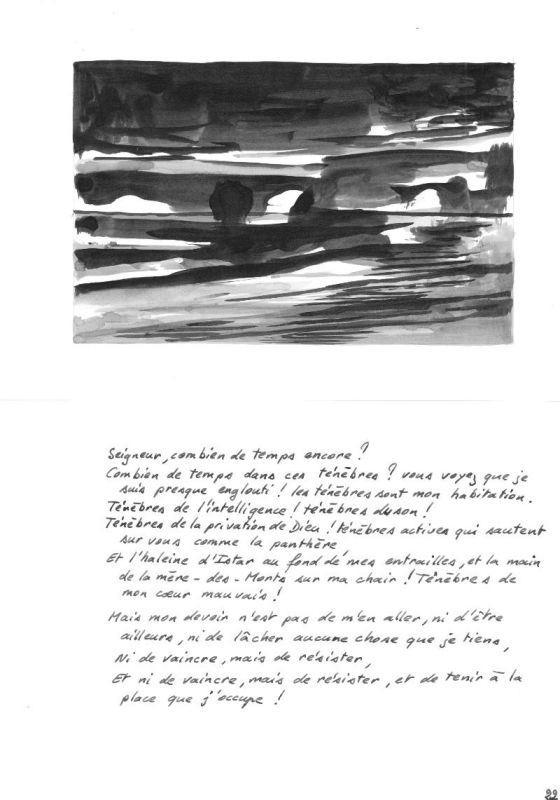 Seigneur, combien de temps encore ?
Combien de temps dans ces ténèbres ? vous voyez que je
suis presque englouti ! les ténèbres sont mon habitation.
Ténèbres de l'intelligence ! ténèbres du son !
Ténèbres de la privation de Dieu ! ténèbres actives qui sautent
sur vous comme la panthère
Et l'haleine d'Istar au fond de mes entrailles, et la main
de la mère-des-Morts sur ma chair ! Ténèbres de
mon cœur mauvais !
Mais mon devoir n'est pas de m'en aller, ni d'être
ailleurs, ni de lâcher aucune chose que je tiens,
Ni de vaincre, mais de résister,
Et ni de vaincre, mais de résister, et de tenir à la
place que j'occupe !
22